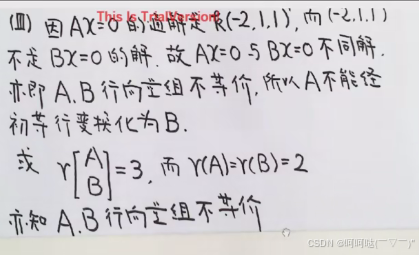 (Ⅲ) 因AX=0的通解是k(-2,1,1)ᵀ,而(-2,1,1)
This Is TrialVersion!
不是BX=0的解.故AX=0与BX=0不同解.
亦即A,B行向量组不等价,所以A不能经
初等行变换化为B.
或 r[A B]=3,而r(A)=r(B)=2
亦知A,B行向量组不等价
CSDN @呵呵哒(￣▽￣)"